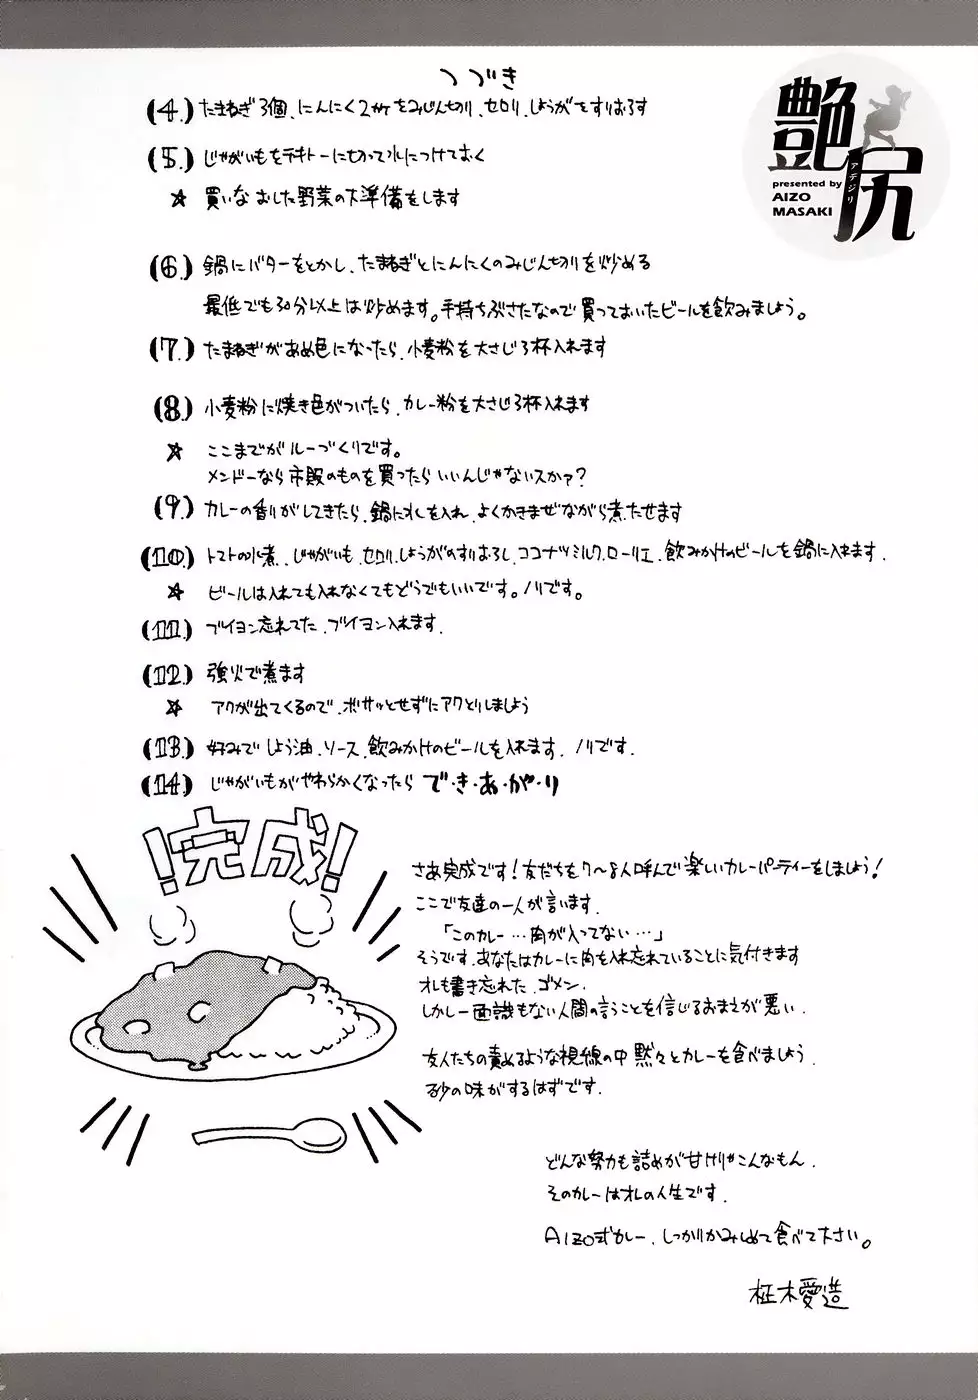 つづき
艶尻
アデジリ
presented by
AIZO
MASAKI
(4.) たまねぎ3個、にんにく2ヶをみじん切り、セロリ、しょうがをすりおろす
(5.) じゃがいもをテキトーに切って水につけておく
☆ 買いなおした野菜の下準備をします
(6.) 鍋にバターをとかし、たまねぎとにんにくのみじん切りを炒める
最低でも30分以上は炒めます。手持ちぶさたなので買っておいたビールを飲みましょう。
(7.) たまねぎがあめ色になったら、小麦粉を大さじ3杯入れます
(8.) 小麦粉に焼き色がついたら、カレー粉を大さじ3杯入れます
☆ ここまでがルーづくりです。
メンドーなら市販のものを買ったらいいんじゃないスかァ?
(9.) カレーの香りがしてきたら、鍋に水を入れ、よくかきまぜながら煮たせます
(10.) トマトの水煮、じゃがいも、セロリ、しょうがのすりおろし、ココナツミルク、ローリエ、飲みかけのビールを鍋に入れます。
☆ ビールは入れても入れなくてもどうでもいいです。ノリです。
(11.) ブイヨン忘れてた、ブイヨン入れます。
(12.) 強火で煮ます
☆ アクが出てくるので、ボサッとせずにアクとりしましょう
(13.) 好みでしょう油、ソース、飲みかけのビールを入れます、ノリです。
(14.) じゃがいもがやわらかくなったら で・き・あ・が・り
!完成!
さあ完成です!友だちを7〜8人呼んで楽しいカレーパーティーをしましょう!
ここで友達の一人が言います、
「このカレー…肉が入ってない…」
そうです、あなたはカレーに肉を入れ忘れていることに気付きます
オレも書き忘れた、ゴメン、
しかし一面識もない人間の言うことを信じるおまえが悪い、
友人たちの責めるような視線の中黙々とカレーを食べましょう、
砂の味がするはずです。
どんな努力も詰めが甘けりゃこんなもん、
そのカレーはオレの人生です、
AIZO式カレー、しっかりかみしめて食べて下さい。
柾木愛造